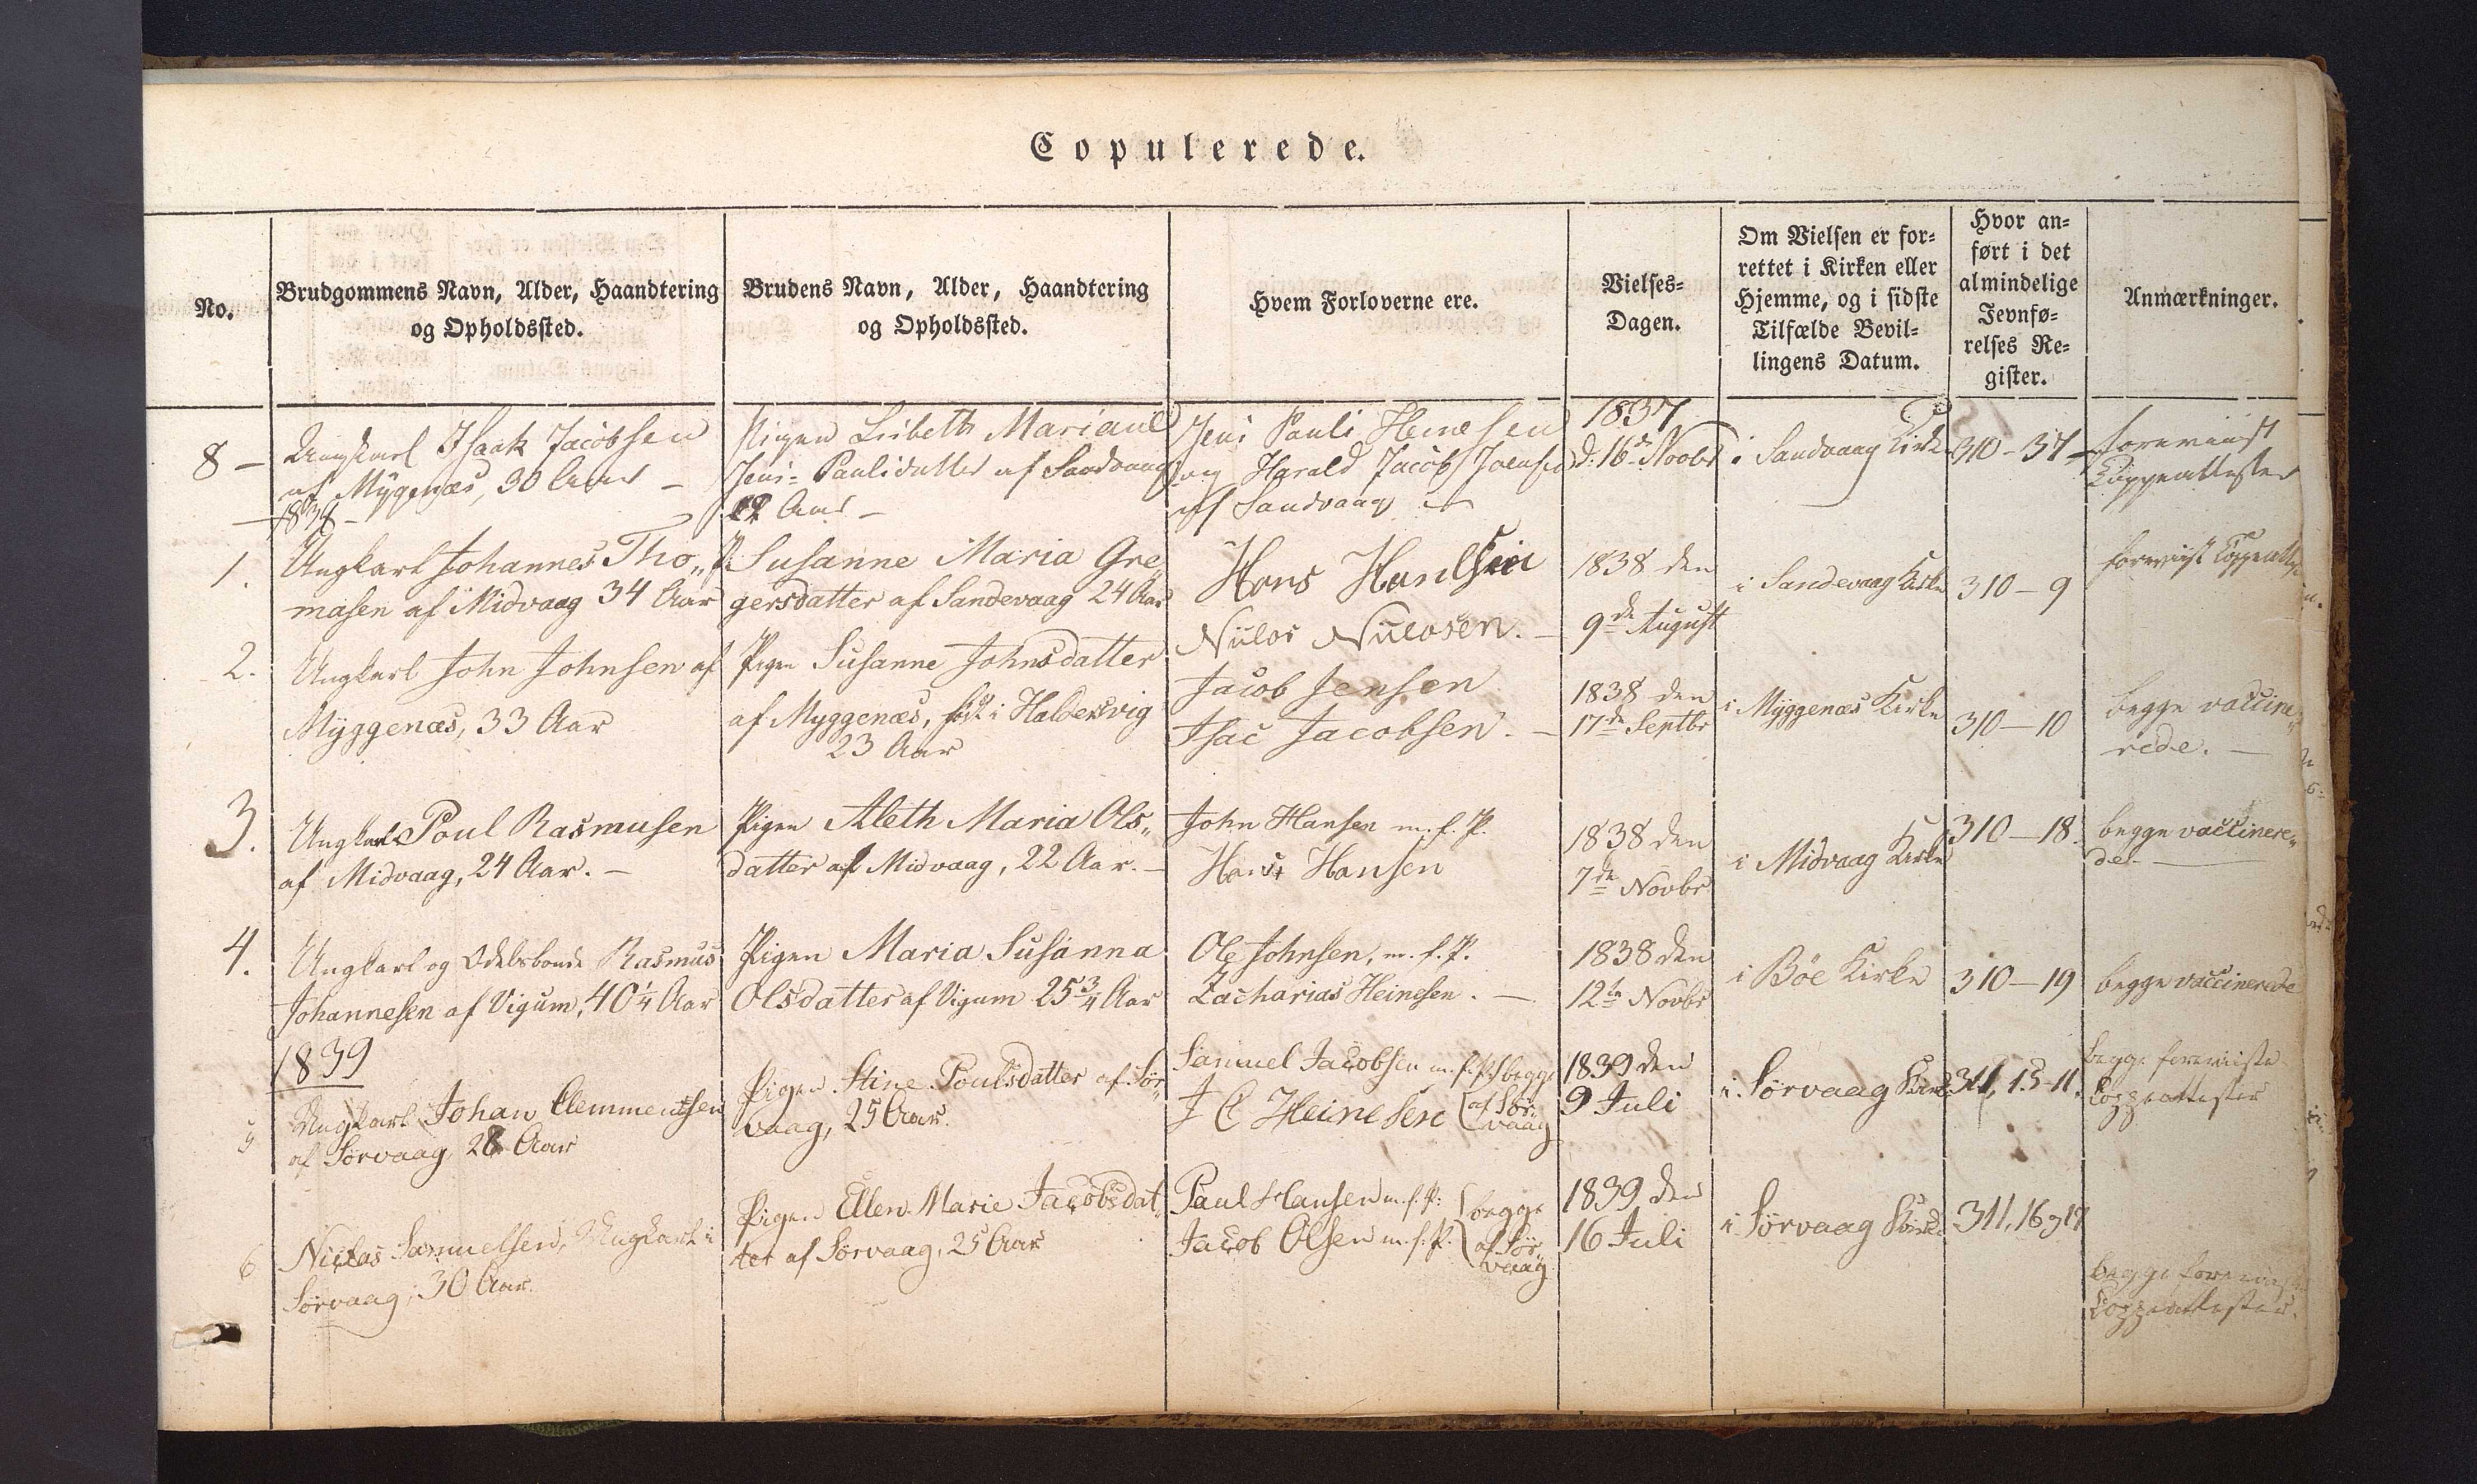 Copulerede.
No.
Brudgommens Navn, Alder, Haandtering
og Opholdssted.
Brudens Navn, Alder, Haandtering
og Opholdssted.
Hvem Forloverne ere.
Vielses-
Dagen.
Om Vielsen er for-
rettet i Kirken eller
Hjemme, og i sidste
Tilfælde Bevil-
lingens Datum.
Hvor an-
ført i det
almindelige
Jevnfø-
relses Re-
gister.
Anmærkninger.
8 –
Ungkarl Isaak Jacobsen
af Mygenæs, 30 Aar –
Pigen Lisbeth Mariane
Jens-Paulidatter af Sandvaag
Aar –
Jens Pauli Heinesen
og Harald Jacob Joensen
af Sandvaag
1837
d: 16de Novbr
i Sandvaag Kirke
310 – 37
foreviist
Koppeattester
1838 –
1.
Ungkarl Johannes Tho„
masen af Midvaag 34 Aar
P. Susanne Maria Gre
gersdatter af Sandevaag 24 Aar
Hans
Niclos Niclosen. –
1838 den
9de August
i Sandevaag Kirke
310 – 9
foreviist
2.
Ungkarl John Johnsen af
Myggenæs, 33 Aar
Pigen Susanne Johnsdatter
af Myggenæs, født i Haldersvig
23 Aar
Jacob Jensen
Isac Jacobsen. –
1838 den
17de Septbr
i Myggenæs Kirke
310 – 10
begge vaccine„
rede. –
3.
Ungkarl Poul Rasmusen
af Midvaag, 24 Aar. –
Pigen Aleth Maria Ols„
datter af Midvaag, 22 Aar. –
John Hansen m. f. P.
Hans Hansen
1838 den
7de Novbr
i Midvaag Kirke
310 – 18.
begge vaccinere„
de. –
4.
Ungkarl og Odelsbonde Rasmus
Johannesen af Vigum, 40 1/4 Aar
Pigen Maria Susanna
Olsdatter af Vigum 25 3/4 Aar
Ole Johnsen, m. f. P.
Zacharias Heinesen. –
1838 den
12te Novbr
i Bøe Kirke
310 – 19
begge vaccinerede
1839
5
Ungkarl Johan Clemmentsen
af Sørvaag, 28 Aar
Pigen Stine Poulsdatter af Sør„
vaag, 25 Aar.
Samuel Jacobsen m. f. P. begge
J C Heinesen af Sør„
vaag
1839 den
9 Juli
i Sørvaag Kirke
311, 15-11.
begge foreviiste
Koppeattester
6
Niclas Samuelsen, Ungkarl i
Sørvaag, 30 Aar.
Pigen Ellen Marie Jacobsdat„
ter af Sørvaag, 25 Aar
Paul Hansen m. f. P. begge
Jacob Olsen m. f. P. af Sør„
vaag
1839 den
16 Juli
i Sørvaag Kirke
311, 16 &
begge foreviiste
Koppeattester.